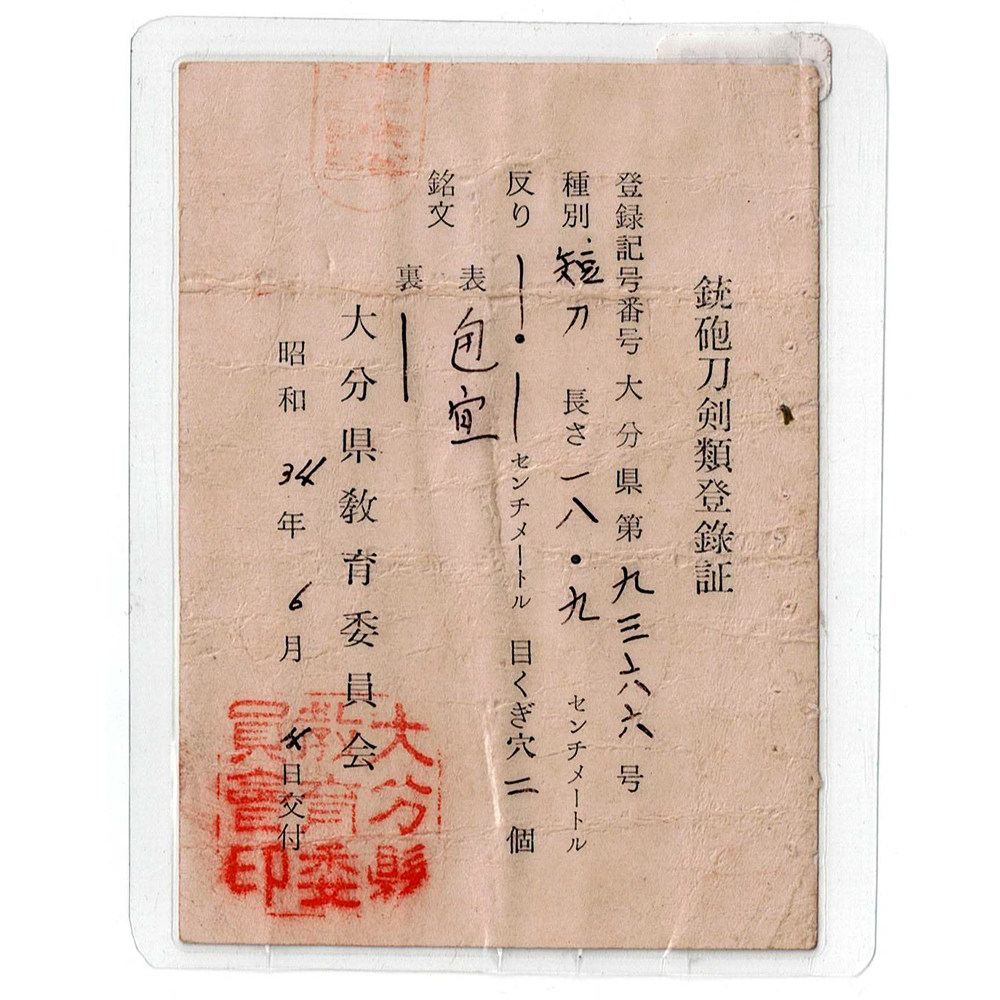 銃砲刀剣類登録証
登録記号番号 大分県第九三六六号
種別 短刀 長さ 一八・九 センチメートル
反り ー・ー センチメートル 目くぎ穴 二 個
銘文 表 包宜
裏 ー
大分県教育委員会
昭和 34 年 6 月 4 日交付
大分縣
教育委
員會印